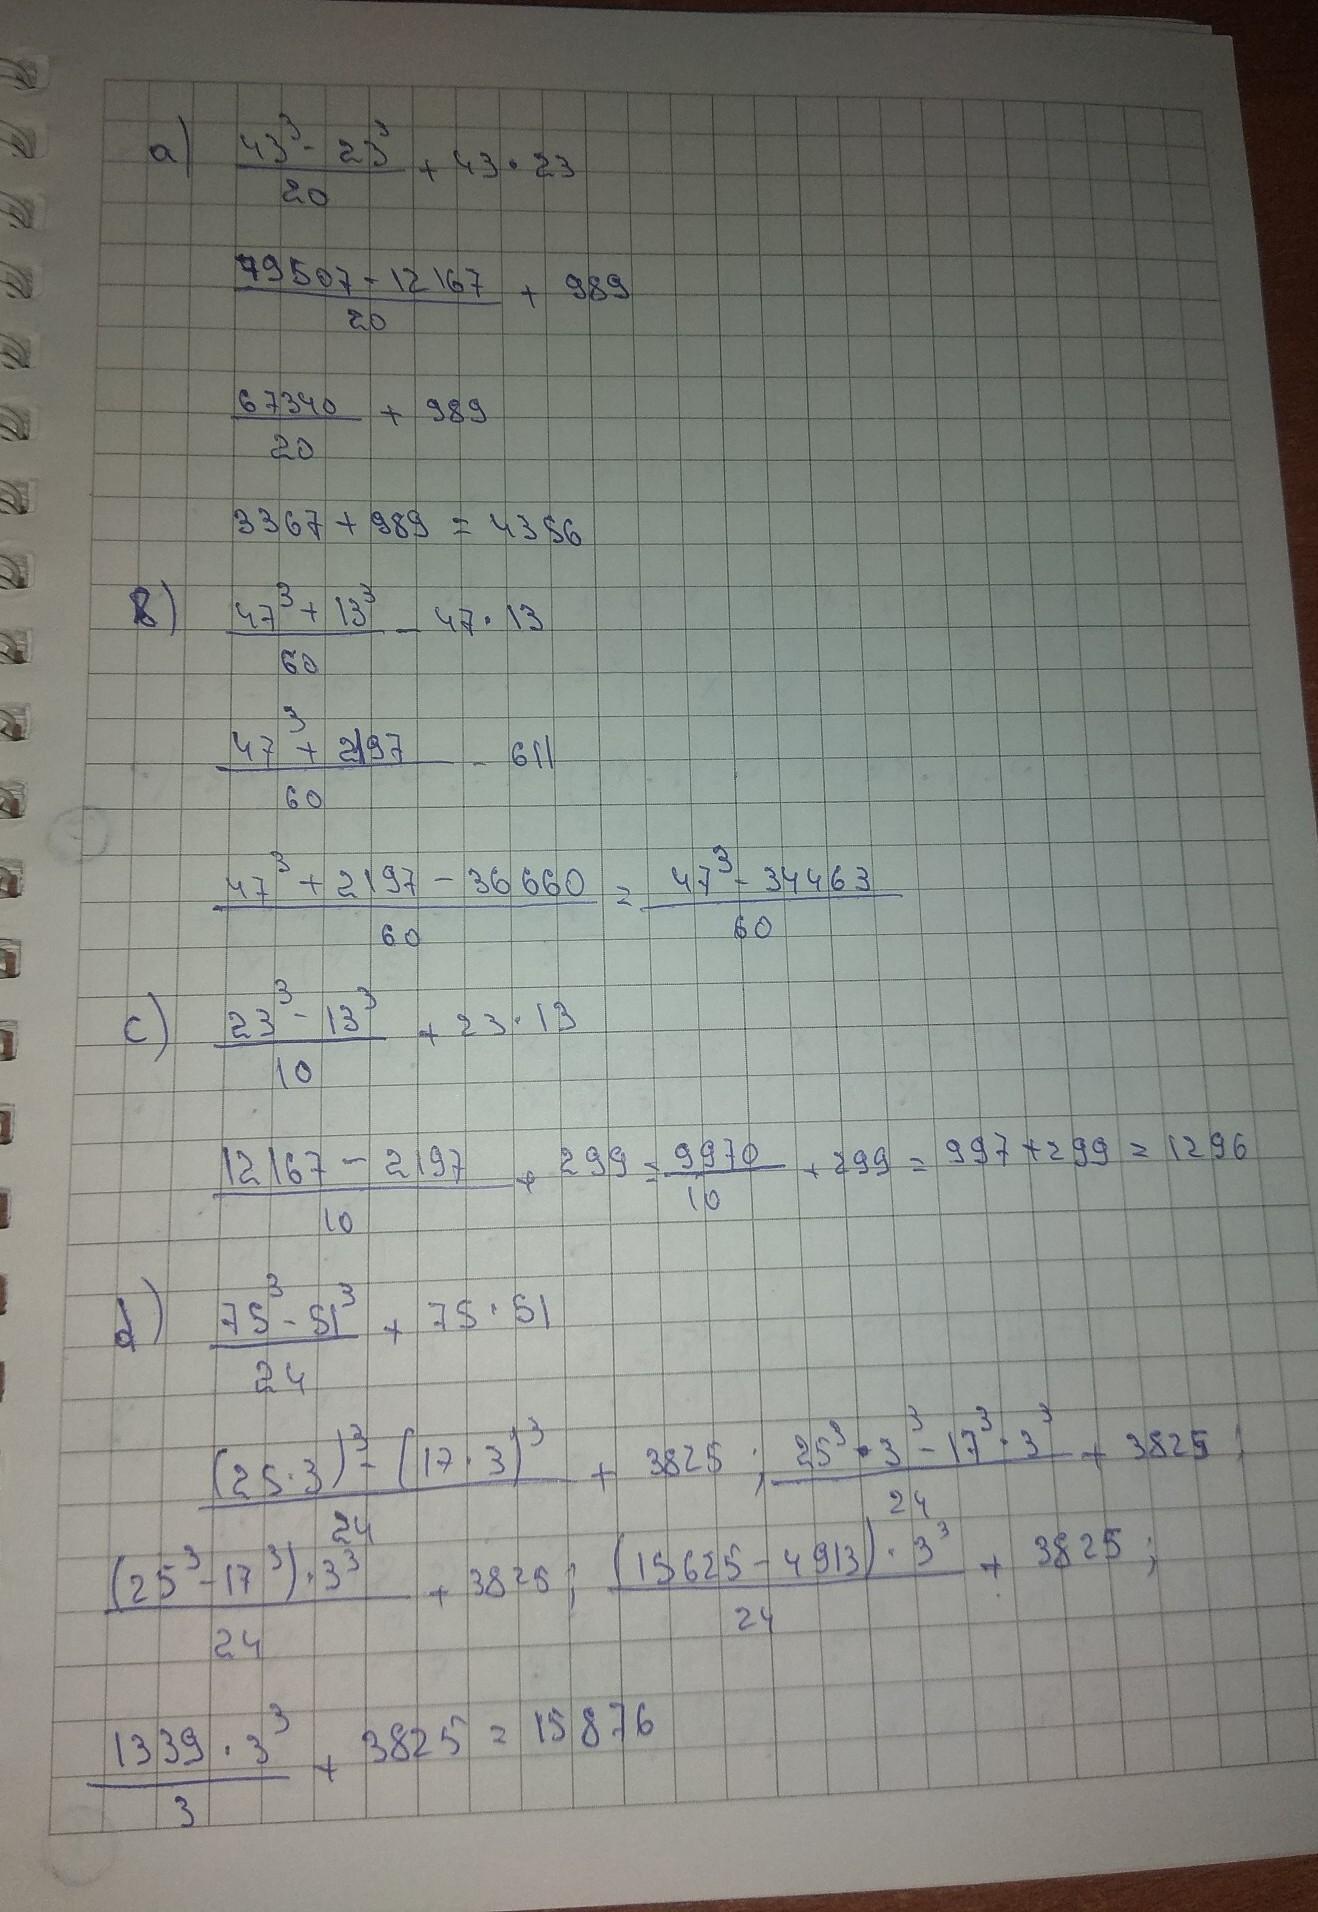 a) (43³ - 23³)/20 + 43·23
(79507 - 12167)/20 + 989
67340/20 + 989
3367 + 989 = 4356
b) (47³ + 13³)/60 - 47·13
(47³ + 2197)/60 - 611
(47³ + 2197 - 36660)/60 = (47³ - 34463)/60
c) (23³ - 13³)/10 + 23·13
(12167 - 2197)/10 + 299 = 9970/10 + 299 = 997 + 299 = 1296
d) (75³ - 51³)/24 + 75·51
((25·3)³ - (17·3)³)/24 + 3825 ; (25³·3³ - 17³·3³)/24 + 3825 ;
((25³ - 17³)·3³)/24 + 3825 ; ((15625 - 4913)·3³)/24 + 3825 ;
(1339·3³)/3 + 3825 = 15876